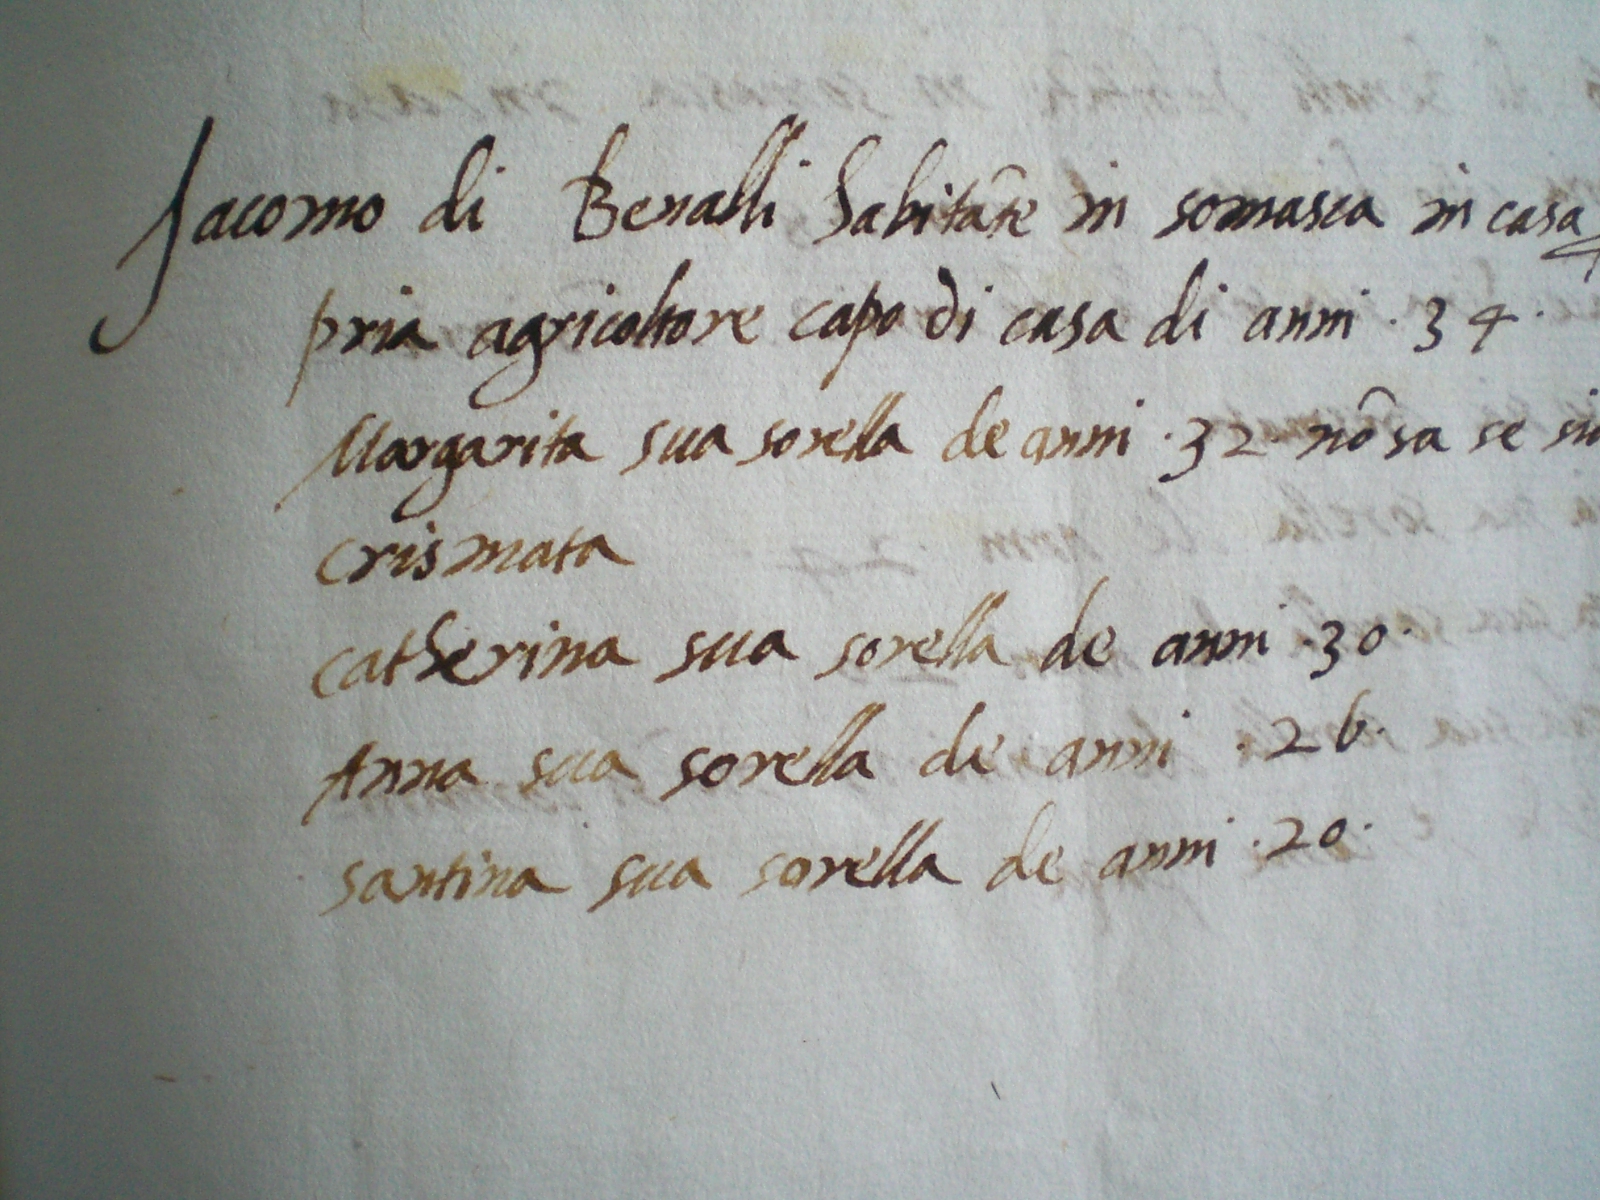 Jacomo di Benalli habitãte in somasca in casa
pria agricoltore capo di casa di anni · 34 ·
Margarita sua sorella de anni · 32 · nõ sa se sia
crismata
catherina sua sorella de anni · 30 ·
Anna sua sorella de anni · 26 ·
santina sua sorella de anni · 20 ·